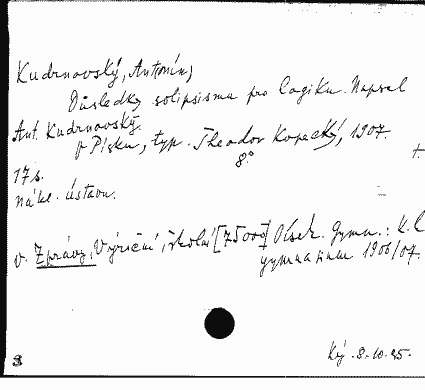 Kudrnovský, Antonín,)
Důsledky solipsismu pro logiku. Napsal
Ant. Kudrnovský.
V Písku, typ. Theodor Kopecký, 1907.
8°
17 s.
Nákl. ústavu.
v. Zprávy, Výroční, školní [7500] Písek. Gymn.: K.
gymnasium 1906/07.
3
8.10.45.